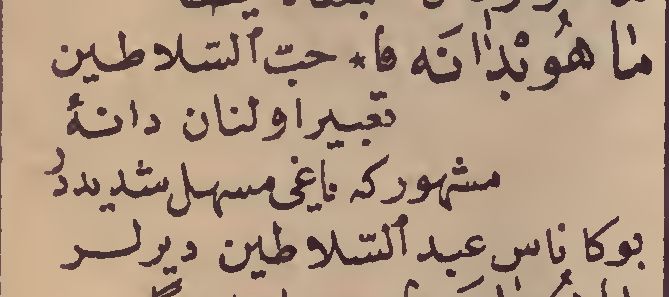 ماهُوبْدَانَه فا* حبّ السّلاطين
تعبير اولنان دانهٔ
مشهور كه ياغى مسهل شديددُر
بوكا ناس عبد السّلاطين ديرلر